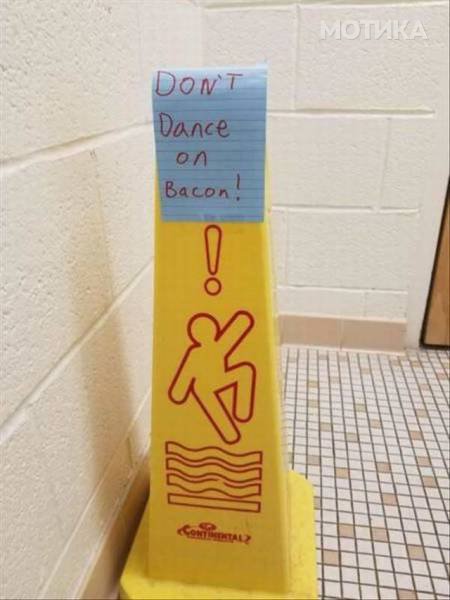 МОТИКА
DON'T
Dance
on
Bacon!
!
CONTINENTAL